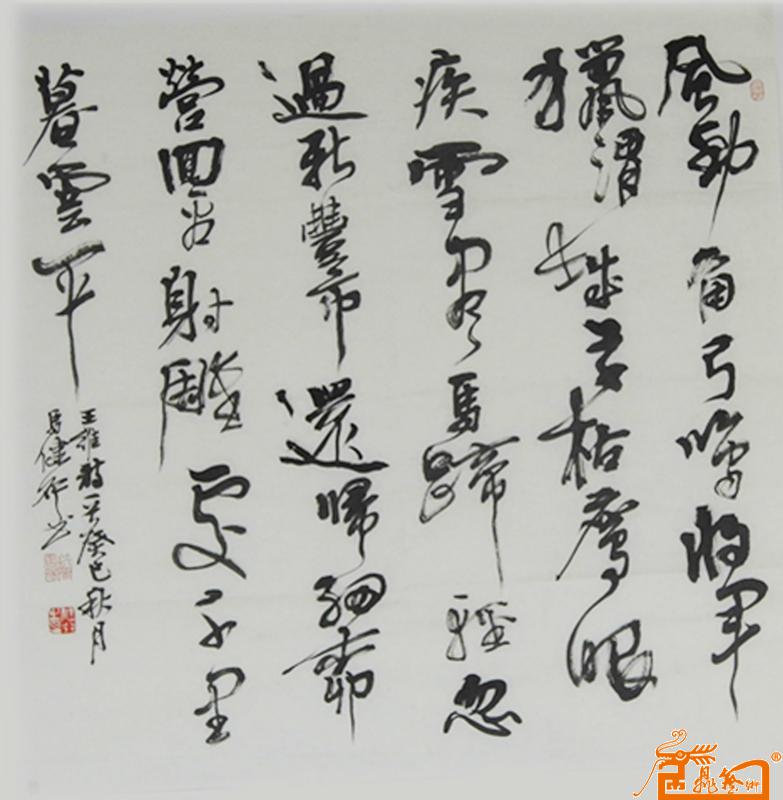 風勁角弓鳴將軍
獵渭城草枯鷹眼
疾雪盡馬蹄輕忽
過新豐市還歸細柳
營回看射雕處千里
暮雲平
王維詩一首癸巳秋月
健